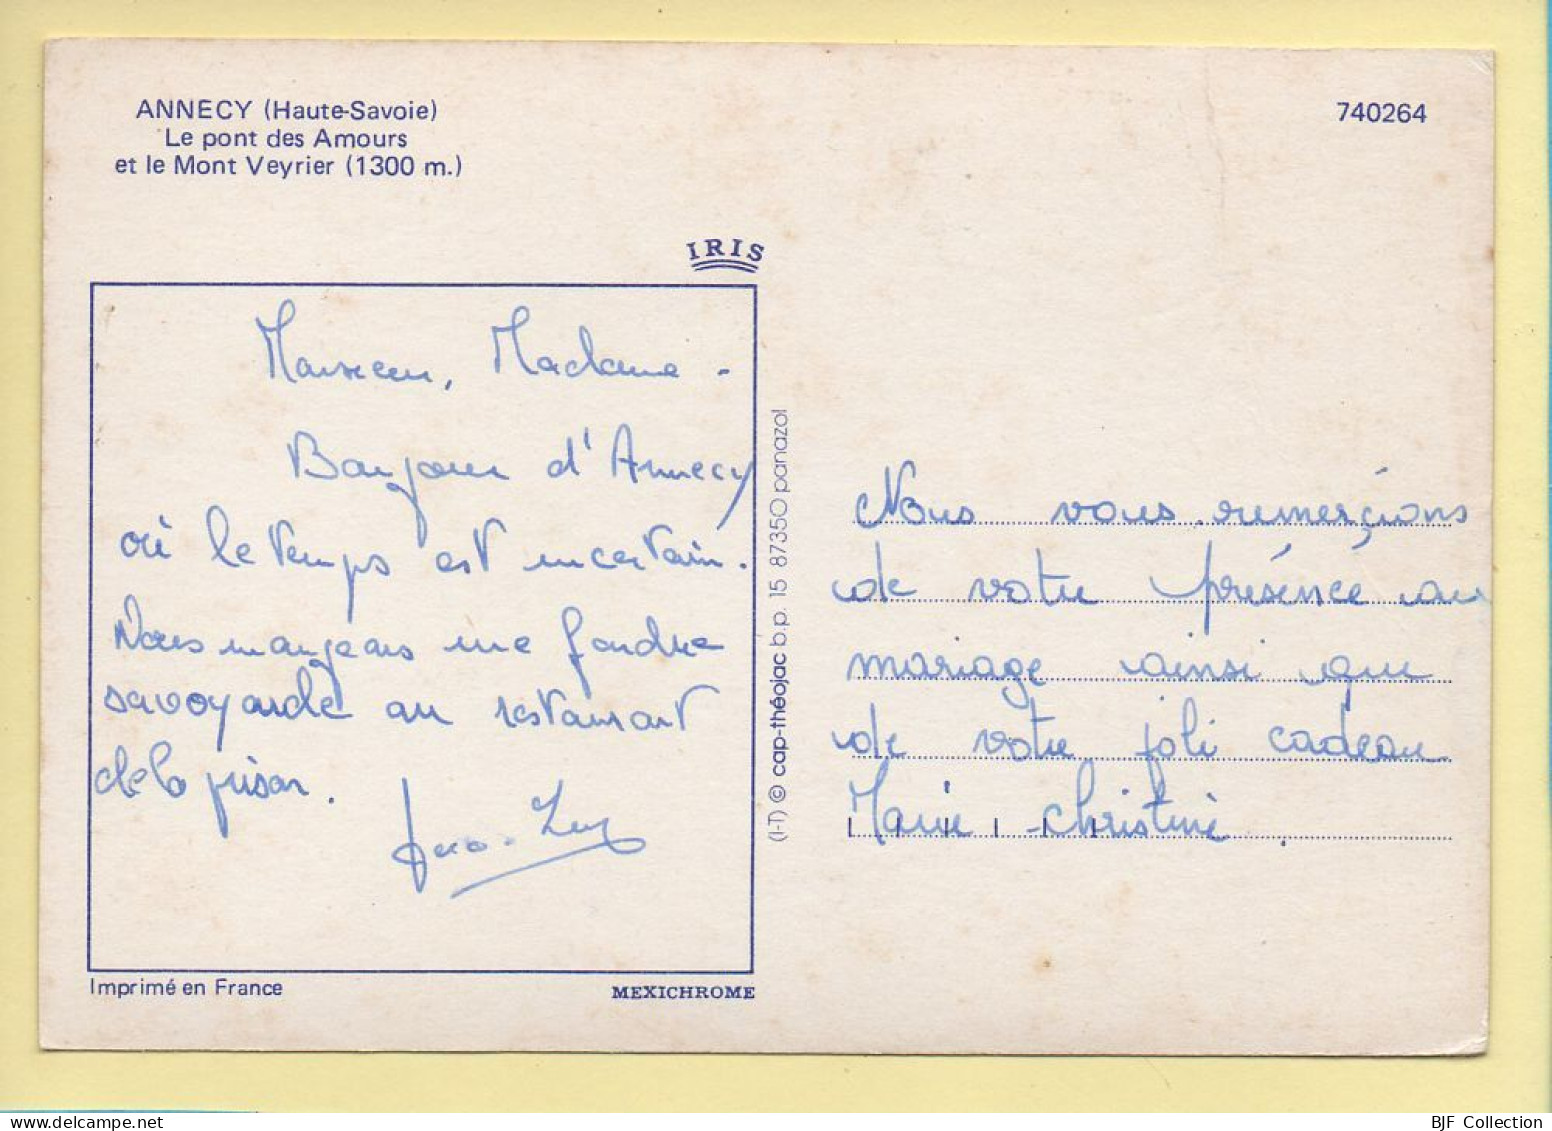 ANNECY (Haute-Savoie)
Le pont des Amours
et le Mont Veyrier (1300 m.)
740264
IRIS
Monsieur, Madame -
Bonjour d'Annecy
où le temps est incertain.
Nous mangeons une fondue
savoyarde au restaurant
de la prison.
Jean-Luc
Imprimé en France
MEXICHROME
(I-T) © cap-théojac b.p. 15 87350 panazol
Nous vous remerçions
de votre présence au
mariage ainsi que
de votre joli cadeau
Marie-Christine.
BJF Collection